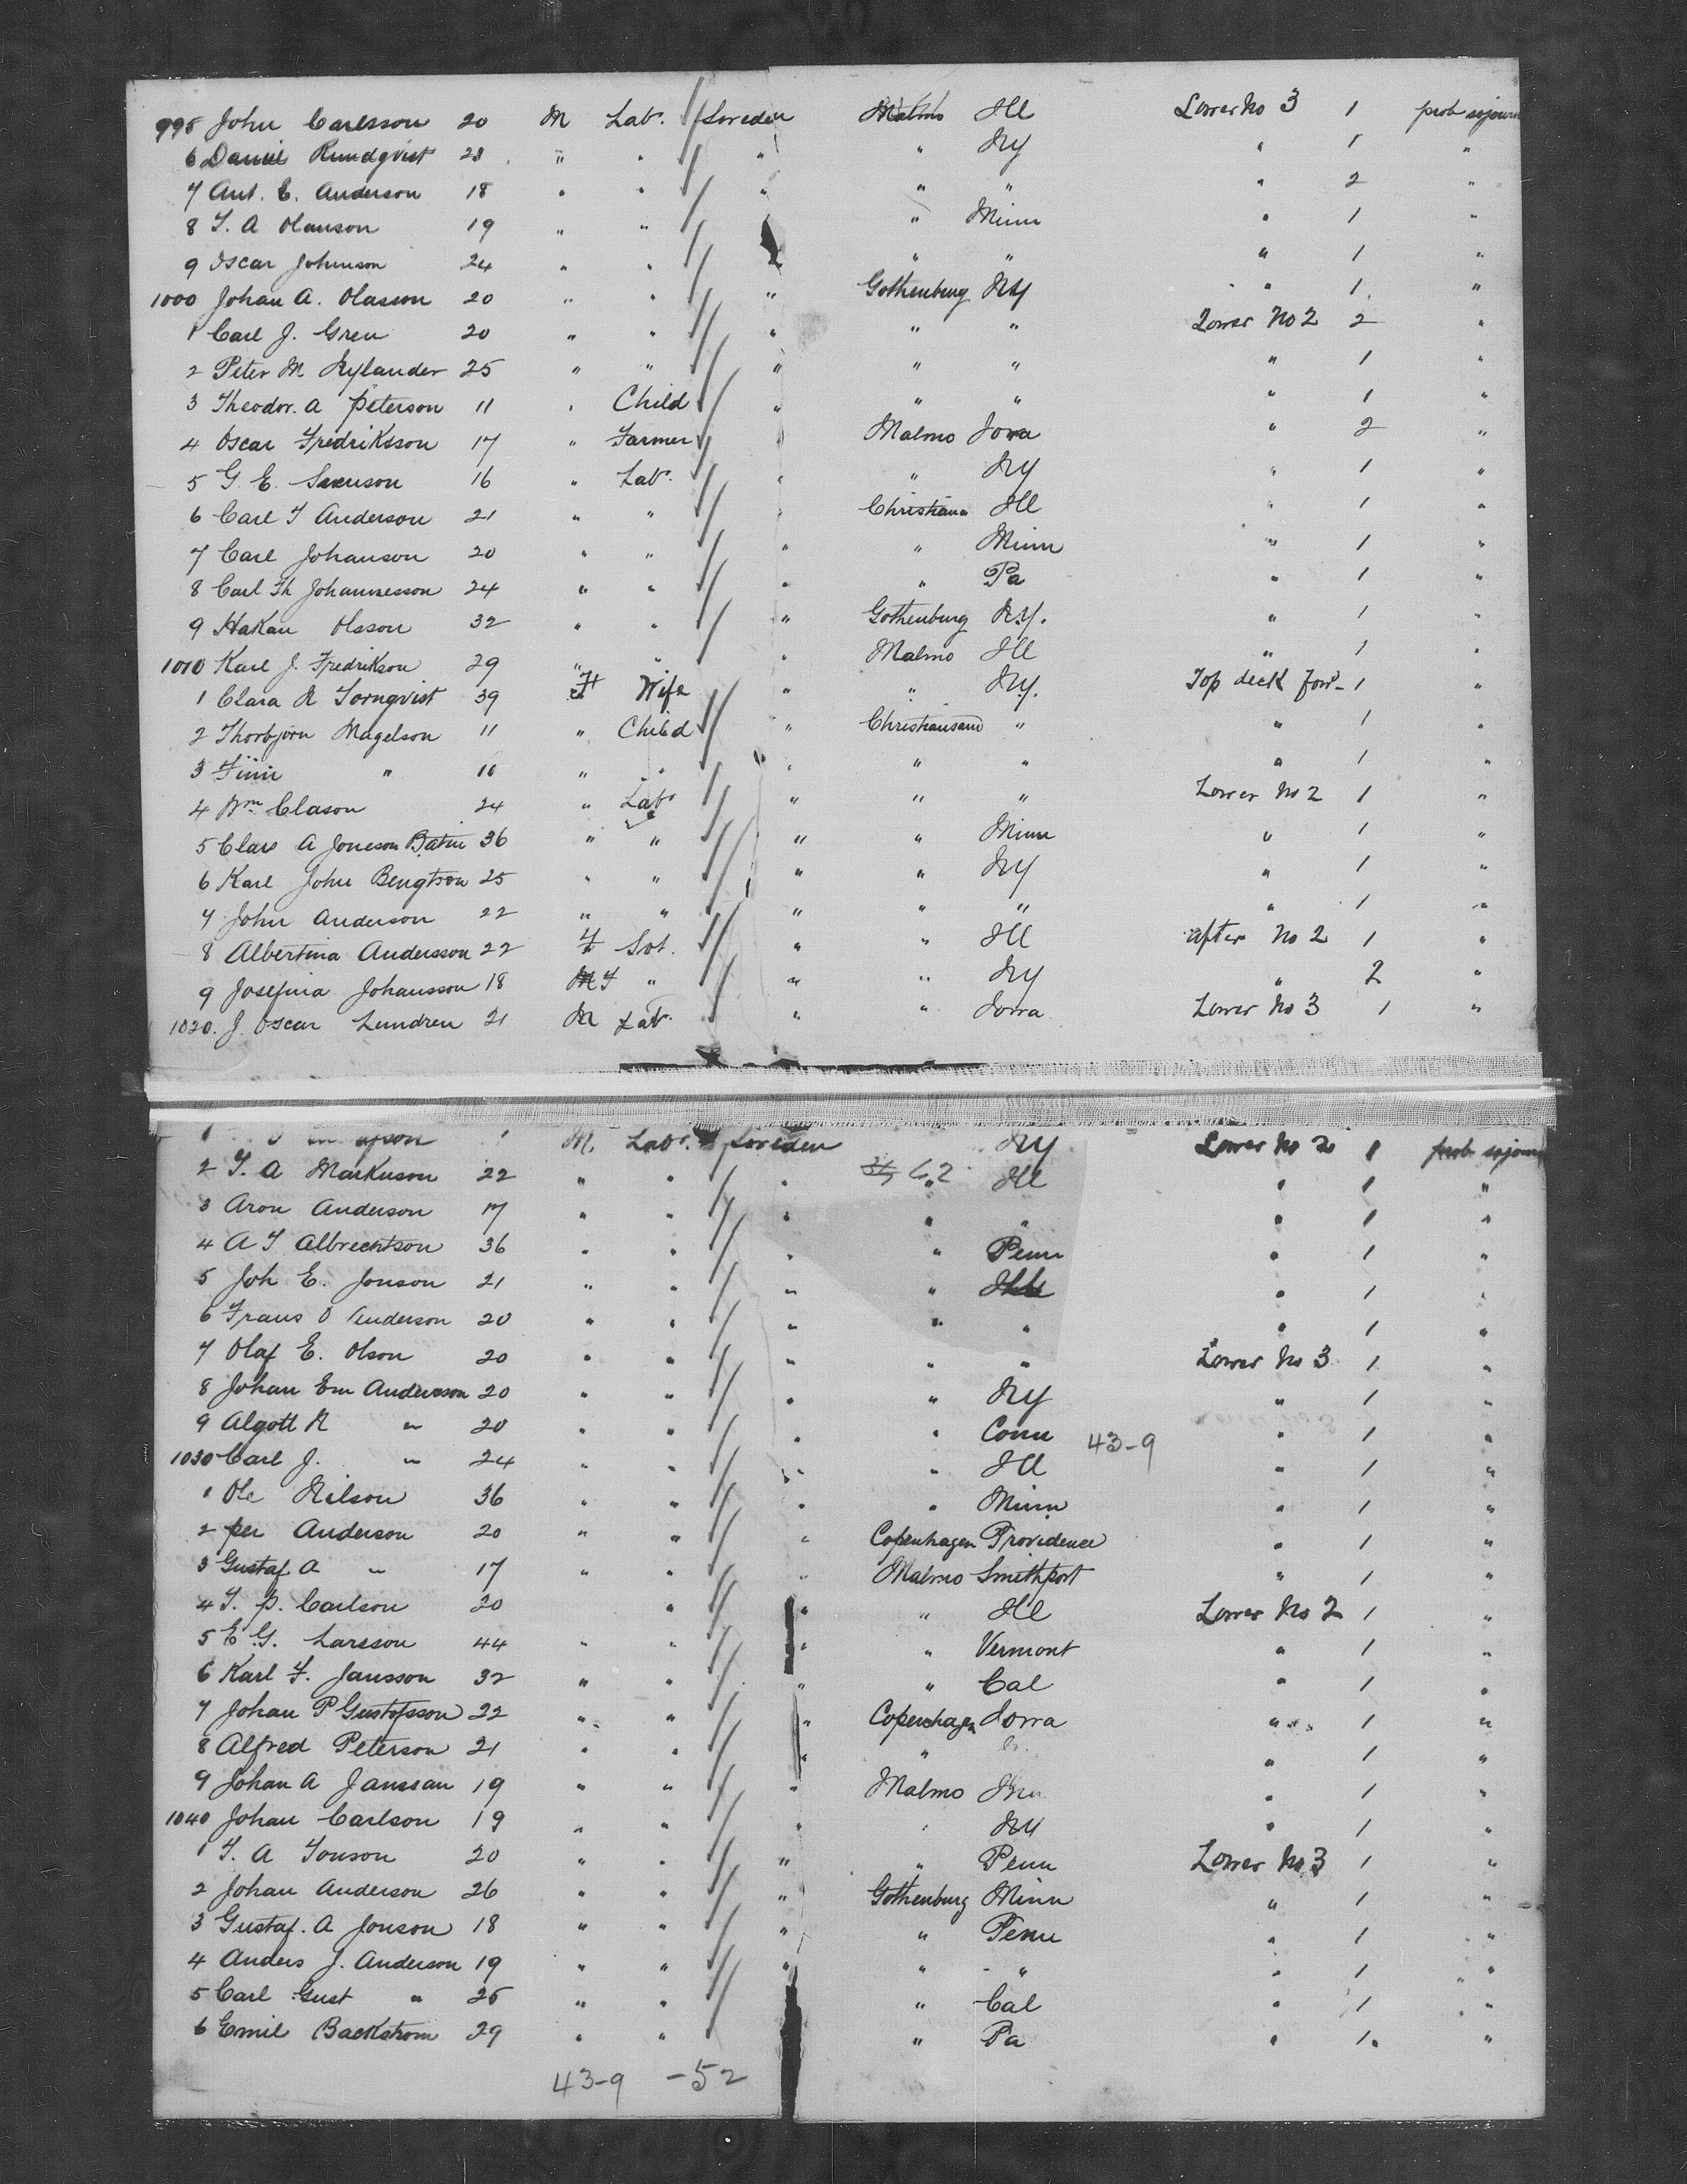 995 John Carlsson 20 M Lab. Sweden Malmo Ill Lower No 3 1 prob sojourn
6 Daniel Rundqvist 23 " " " " NY " 1 "
7 Ant. E. Anderson 18 " " " " " " 2 "
8 T. A Olauson 19 " " " Minn " 1 "
9 Oscar Johnson 24 " " " " " 1 "
1000 Johan A. Olasson 20 " " " Gothenburg NY " 1 "
1 Carl J. Gren 20 " " " " " Lower No 2 2 "
2 Peter M. Nylander 25 " " " " " " 1 "
3 Theodor. A Peterson 11 " Child " " " " 1 "
4 Oscar Fredriksson 17 " Farmer " Malmo Iowa " 2 "
5 G. E. Swenson 16 " Lab. " " NY " 1 "
6 Carl F Anderson 21 " " " Christiana Ill " 1 "
7 Carl Johanson 20 " " " " Minn " 1 "
8 Carl Th Johannesson 24 " " " " Pa " 1 "
9 Hakan Olsson 32 " " " Gothenburg N.Y. " 1 "
1010 Karl J. Fredrikson 29 " " " Malmo Ill " 1 "
1 Clara N Tornqvist 39 F Wife " " N.Y. Top deck forw- 1 "
2 Thorbjorn Magelson 11 " Child " Christiansand " " 1 "
3 Finn " 10 " " " " " " 1 "
4 Wm Clason 24 " Lab " " " Lower No 2 1 "
5 Clas A Joneson Batin 36 " " " " Minn " 1 "
6 Karl John Bengtson 25 " " " " NY " 1 "
7 John Anderson 22 " " " " " " 1 "
8 Albertina Andersson 22 F Svt. " " Ill After No 2 1 "
9 Josefina Johansson 18 F " " " NY " 2 "
1020. J. Oscar Lundren 21 M Lab. " " Iowa Lower No 3 1 "
1 M. Lab. Sweden NY Lower No 2 1 prob sojourn
2 T. A Markuson 22 " " " 62 " Ill " 1 "
3 Aron Anderson 17 " " " " " " 1 "
4 A F Albrechtson 36 " " " " Penn " 1 "
5 Joh E. Jonson 21 " " " " " 1 "
6 Frans O Anderson 20 " " " " " " 1 "
7 Olaf E. Olson 20 " " " " " Lower No 3 1 "
8 Johan Em Andersson 20 " " " " NY " 1 "
9 Algott N " 20 " " " " Conn 43-9 " 1 "
1030 Carl J. " 24 " " " " Ill " 1 "
1 Ole Nilson 36 " " " " Minn " 1 "
2 per Anderson 20 " " " Copenhagen Providence " 1 "
3 Gustaf A " 17 " " " Malmo Smithport " 1 "
4 T. P. Carlson 20 " " " Ill Lower No 2 1 "
5 E G. Larsson 44 " " " " Vermont " 1 "
6 Karl F. Jansson 32 " " " " Cal " 1 "
7 Johan P Gustofsson 22 " " " Copenhagen Iowa " 1 "
8 Alfred Peterson 21 " " " " " 1 "
9 Johan A Janssan 19 " " " Malmo " 1 "
1040 Johan Carlson 19 " " " " NY " 1 "
1 T. A Tonson 20 " " " " Penn Lower No 3 1 "
2 Johan Anderson 26 " " " Gothenburg Minn " 1 "
3 Gustaf. A Jonson 18 " " " " Penn " 1 "
4 Anders J. Anderson 19 " " " " " " 1 "
5 Carl Gust " 25 " " " Cal " 1 "
6 Emil Backstrom 29 " " " Pa " 1. "
43-9 -52